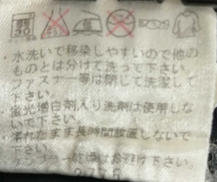 ・水洗いで移染しやすいので他の
ものとは分けて洗って下さい。
ファスナー等は閉じて洗濯して
下さい。
・蛍光増白剤入り洗剤は使用しな
いで下さい。
・濡れたまま長時間放置しないで
下さい。
タンブラー乾燥はお避け下さい